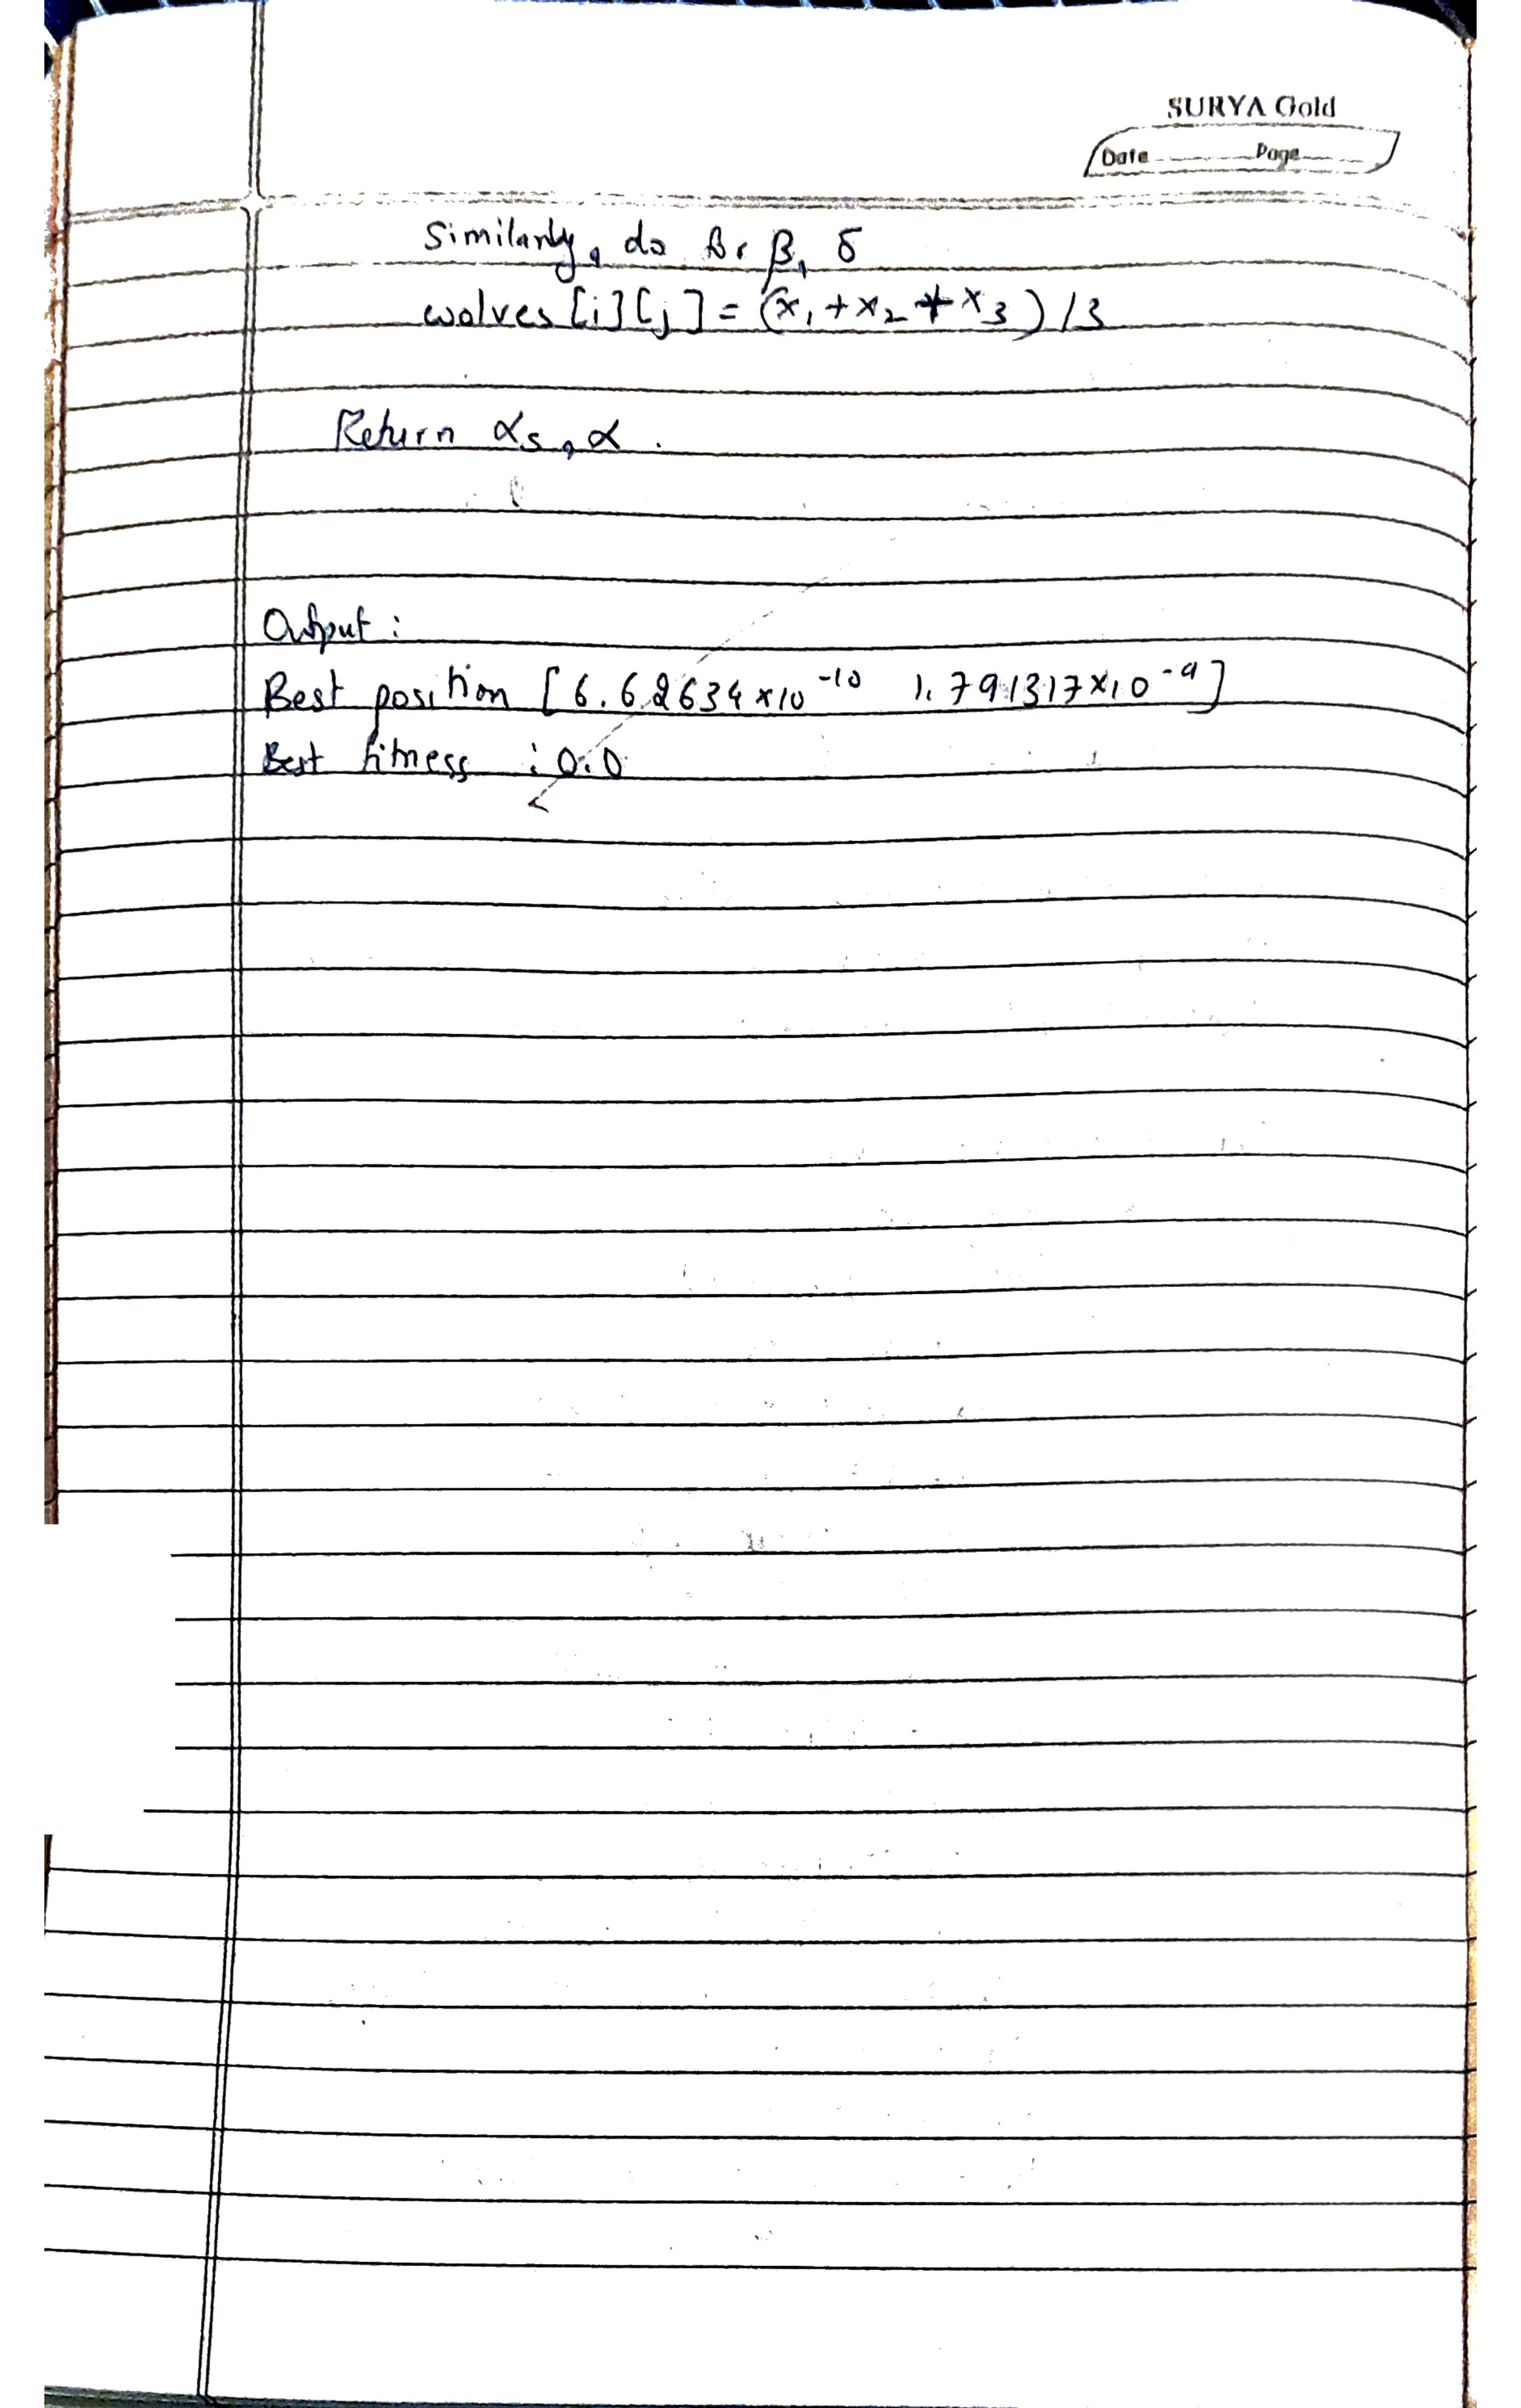 SURYA Gold
Date Page
Similarly, do β, δ
wolves [i][j] = (x₁ + x₂ + x₃) / 3
Return αs, α.
Output :
Best position [6.62634 × 10⁻¹⁰ 1.791317 × 10⁻⁹]
Best fitness : 0.0